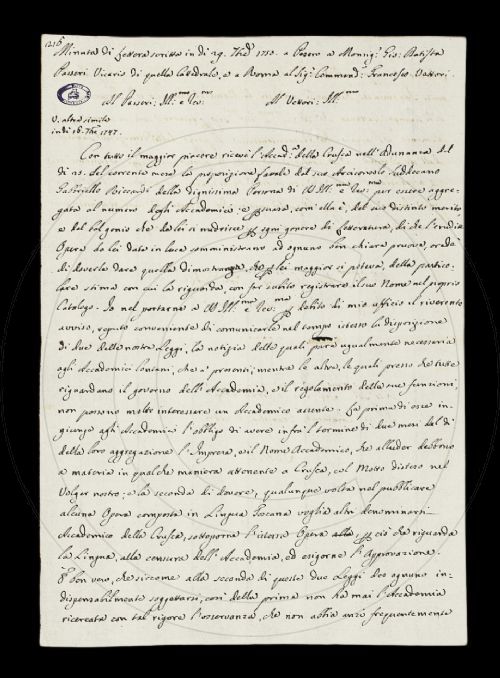 Minuta di Lettera scritta in dì 29. 7bre 1753. a Pesero a Monsig.r Gio: Batista
Passeri Vicario di quella Catedrale, e a Roma al Sig.r Command.re Francesco Vettori.
Al Passeri: Ill.mo e Rev.mo Al Vettori: Ill.mo
V. altra simile
in dì 16. 7bre 1747.
Con tutto il maggior piacere ricevè l'Accad.a della Crusca nell'Adunanza del
dì 25. del corrente mese la proposizione fattale dal suo Arciconsolo Suddecano
Gabbriello Riccardi della degnissima Persona di V.S. Ill.ma e Rev.ma per essere aggre-
gata al numero degli Accademici e persuasa, com'ella è, del suo distinto merito
e del bel genio che da lei si nudrisce per ogni genere di Letteratura, di che l'erudite
Opere da lei date in luce somministrano ad ognuno ben chiara prova, credè
di doverle dare quella dimostranza, che per lei maggior si poteva, della partico-
lare stima con cui la riguarda, con far subito registrare il suo Nome nel proprio
Catalogo. Io nel portarne a V.S. Ill.ma e Rev.ma per debito di mio ufficio il riverente
avviso, reputo conveniente di comunicarle nel tempo istesso la disposizione
di due delle nostre Leggi, la notizia delle quali pare ugualmente necessaria
agli Accademici lontani, che a' presenti, mentre le altre, le quali presso che tutte
riguardano il governo dell'Accademia, e il regolamento delle sue funzioni,
non possono molto interessare un Accademico assente. La prima di esse in-
giunge agli Accademici l'obbligo di avere infra 'l termine di due mesi dal dì
della loro aggregazione l'Impresa, e il Nome Accademico, che alluder debbono
a materia in qualche maniera attenente a Crusca, col Motto disteso nel
Volgar nostro; e la seconda di dovere, qualunque volta nel pubblicare
alcuna Opera composta in Lingua Toscana voglia altri denominarsi
Accademico della Crusca, sottoporre l'istessa Opera alla, per ciò che riguarda
la Lingua, alla censura dell'Accademia, ed esigerne l'Approvazione.
È ben vero, che siccome alla seconda di queste due Leggi dee ognuno in-
dispensabilmente soggettarsi, così della prima non ha mai l'Accademia
ricercata con tal rigore l'osservanza, che non abbia anzi frequentemente